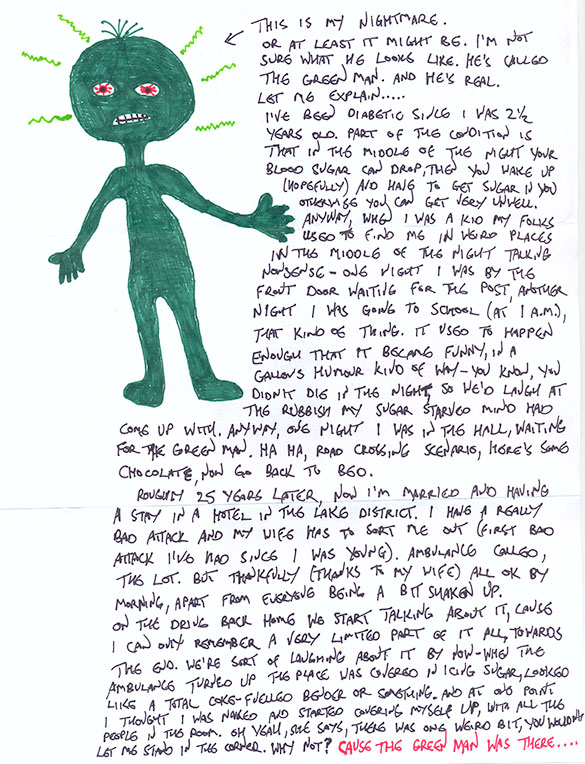 THIS IS MY NIGHTMARE.
OR AT LEAST IT MIGHT BE. I'M NOT
SURE WHAT HE LOOKS LIKE. HE'S CALLED
THE GREEN MAN. AND HE'S REAL.
LET ME EXPLAIN.....
I'VE BEEN DIABETIC SINCE I WAS 2½
YEARS OLD. PART OF THE CONDITION IS
THAT IN THE MIDDLE OF THE NIGHT YOUR
BLOOD SUGAR CAN DROP, THEN YOU WAKE UP
(HOPEFULLY) AND HAVE TO GET SUGAR IN YOU
OTHERWISE YOU CAN GET VERY UNWELL.
ANYWAY, WHEN I WAS A KID MY FOLKS
USED TO FIND ME IN WEIRD PLACES
IN THE MIDDLE OF THE NIGHT TALKING
NONSENSE - ONE NIGHT I WAS BY THE
FRONT DOOR WAITING FOR THE POST, ANOTHER
NIGHT I WAS GOING TO SCHOOL (AT 1 A.M.),
THAT KIND OF THING. IT USED TO HAPPEN
ENOUGH THAT IT BECAME FUNNY, IN A
GALLOWS HUMOUR KIND OF WAY - YOU KNOW, YOU
DIDN'T DIE IN THE NIGHT, SO WE'D LAUGH AT
THE RUBBISH MY SUGAR STARVED MIND HAD
COME UP WITH. ANYWAY, ONE NIGHT I WAS IN THE HALL, WAITING
FOR THE GREEN MAN. HA HA, ROAD CROSSING SCENARIO, HERE'S SOME
CHOCOLATE, NOW GO BACK TO BED.
ROUGHLY 25 YEARS LATER, NOW I'M MARRIED AND HAVING
A STAY IN A HOTEL IN THE LAKE DISTRICT. I HAVE A REALLY
BAD ATTACK AND MY WIFE HAS TO SORT ME OUT (FIRST BAD
ATTACK I'VE HAD SINCE I WAS YOUNG). AMBULANCE CALLED,
THE LOT. BUT THANKFULLY (THANKS TO MY WIFE) ALL OK BY
MORNING, APART FROM EVERYONE BEING A BIT SHAKEN UP.
ON THE DRIVE BACK HOME WE START TALKING ABOUT IT, CAUSE
I CAN ONLY REMEMBER A VERY LIMITED PART OF IT ALL, TOWARDS
THE END. WE'RE SORT OF LAUGHING ABOUT IT BY NOW - WHEN THE
AMBULANCE TURNED UP THE PLACE WAS COVERED IN ICING SUGAR, LOOKED
LIKE A TOTAL COKE-FUELLED BENDER OR SOMETHING. AND AT ONE POINT
I THOUGHT I WAS NAKED AND STARTED COVERING MYSELF UP, WITH ALL THE
PEOPLE IN THE ROOM. OH YEAH, SHE SAYS, THERE WAS ONE WEIRD BIT, YOU WOULDN'T
LET ME STAND IN THE CORNER. WHY NOT? CAUSE THE GREEN MAN WAS THERE....